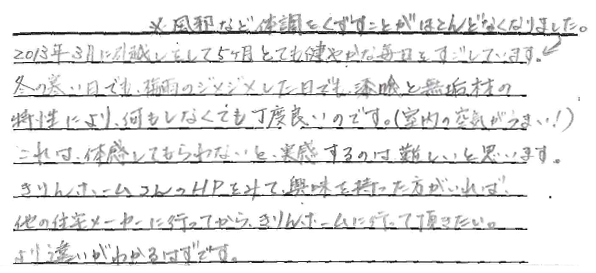 ※風邪など体調をくずすことがほとんどなくなりました。
2013年3月に引越しをして5ヶ月とても健やかな毎日をすごしています。
冬の寒い日でも、梅雨のジメジメした日でも、漆喰と無垢材の
特性により、何もしなくても丁度良いのです。(室内の空気がうまい!)
これは、体感してもらわないと、実感するのは難しいと思います。
きりんホームさんのHPをみて、興味を持った方がいれば、
他の住宅メーカーに行ってから、きりんホームに行って頂きたい。
より違いがわかるはずです。